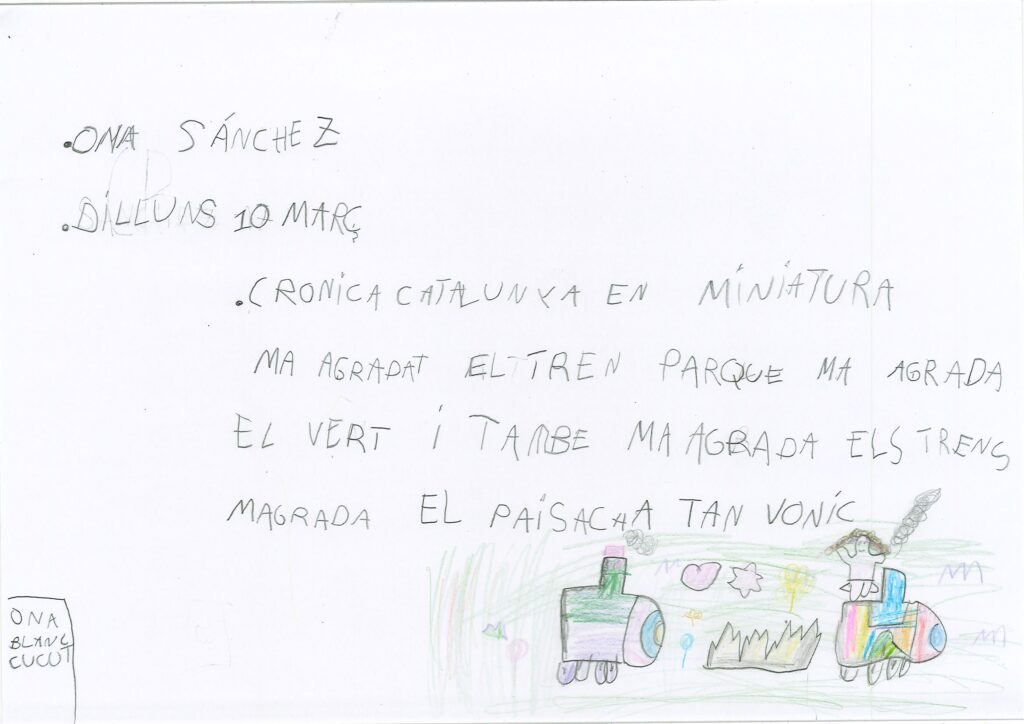 .ONA SÁNCHEZ
.DILLUNS 10 MARÇ
.CRONICA CATALUNYA EN MINIATURA
MA AGRADAT EL TREN PARQUE MA AGRADA
EL VERT I TAMBE MA AGRADA ELS TRENS
MAGRADA EL PAISACHA TAN VONIC
ONA
BLANC
CUCUT